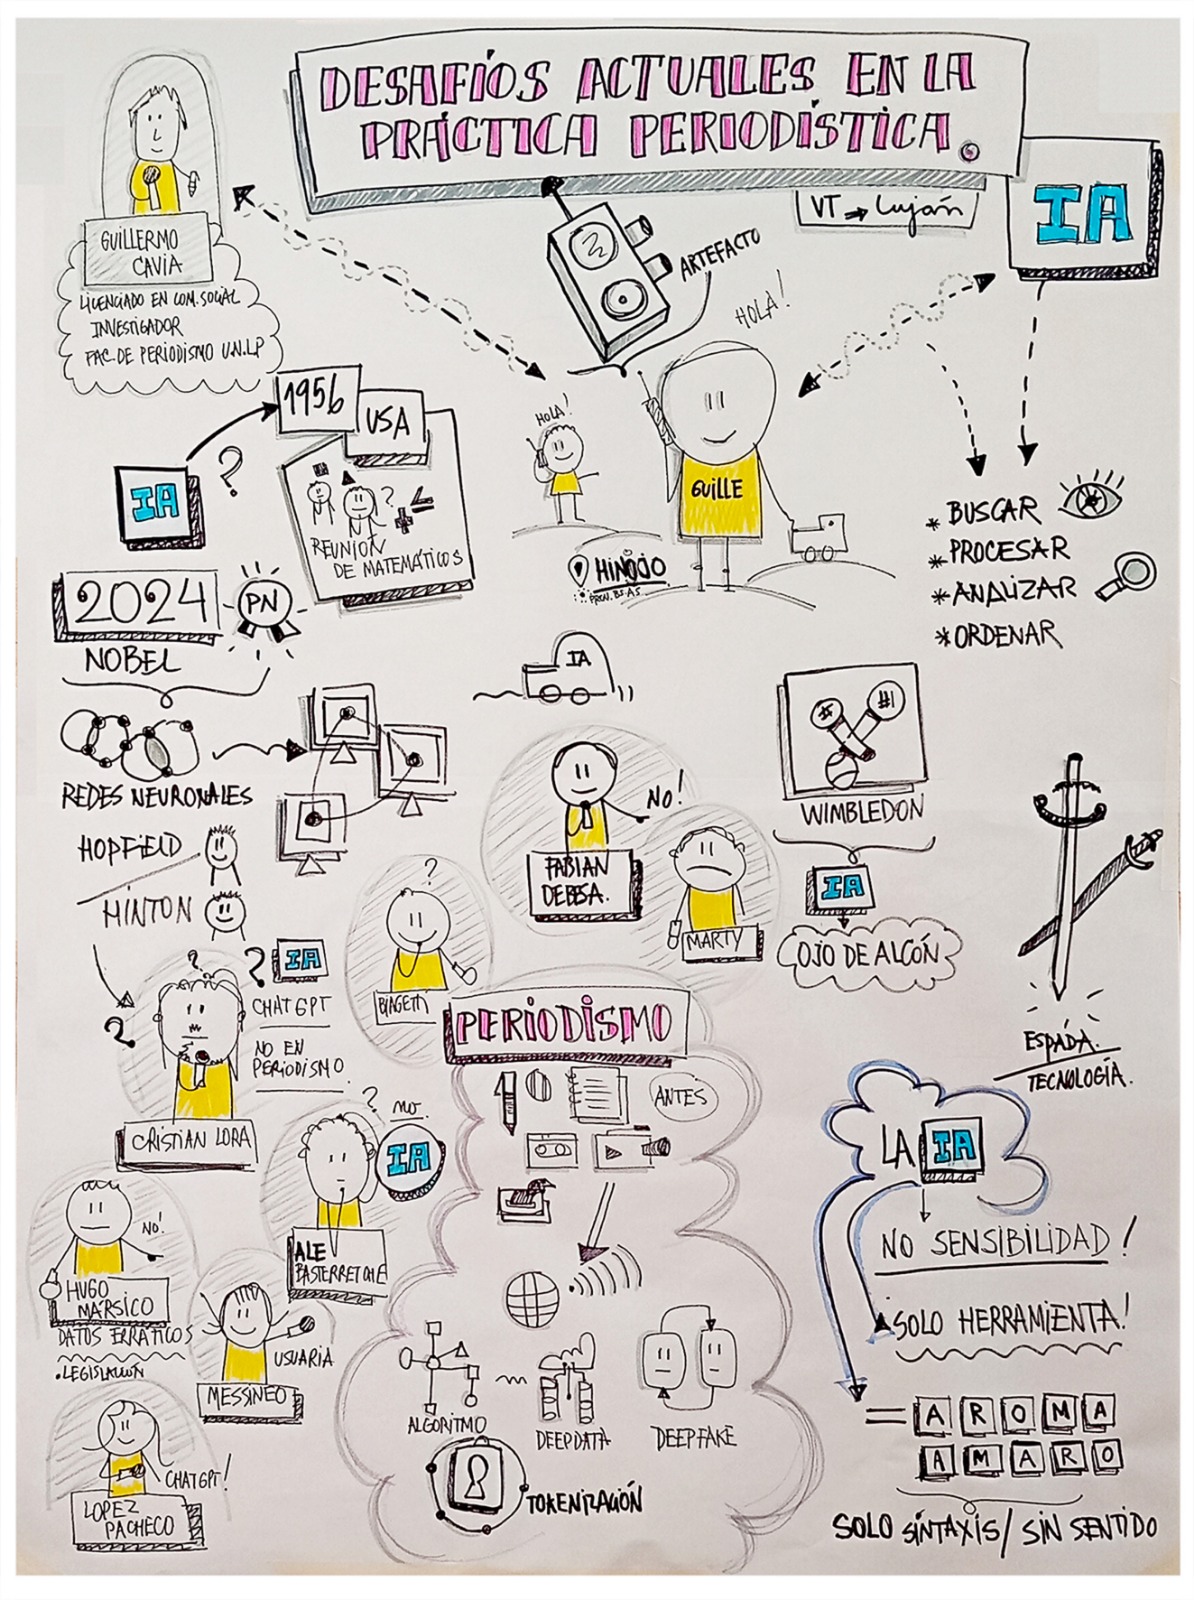 DESAFÍOS ACTUALES EN LA
PRÁCTICA PERIODÍSTICA.
VT → Luján
IA
GUILLERMO
CAVIA
LICENCIADO EN COM. SOCIAL
INVESTIGADOR
FAC. DE PERIODISMO U.N.LP
ARTEFACTO
HOLA!
HOLA!
GUILLE
HINOJO
PROV. BS. AS.
* BUSCAR
* PROCESAR
* ANALIZAR
* ORDENAR
IA
?
1956
USA
IA
?
REUNIÓN
DE MATEMÁTICOS
2024
PN
NOBEL
REDES NEURONALES
HOPFIELD
HINTON
IA
FABIAN
DEBESA.
NO!
MARTY
#1
WIMBLEDON
IA
OJO DE ALCÓN
ESPADA.
TECNOLOGÍA.
?
?
?
IA
CHAT GPT
NO EN
PERIODISMO
CRISTIAN LORA
?
PERIODISMO
ANTES
ALGORITMO
DEEPDATA
DEEPFAKE
TOKENIZACIÓN
?
no.
IA
ALE
BASTERRETCHE
NO!
HUGO
MÁRSICO
DATOS ERRÁTICOS
. LEGISLACIÓN
USUARIA
MESSINEO
CHATGPT!
LOPEZ
PACHECO
LA IA
NO SENSIBILIDAD!
SOLO HERRAMIENTA!
= AROMA
AMARO
SOLO SINTAXIS / SIN SENTIDO